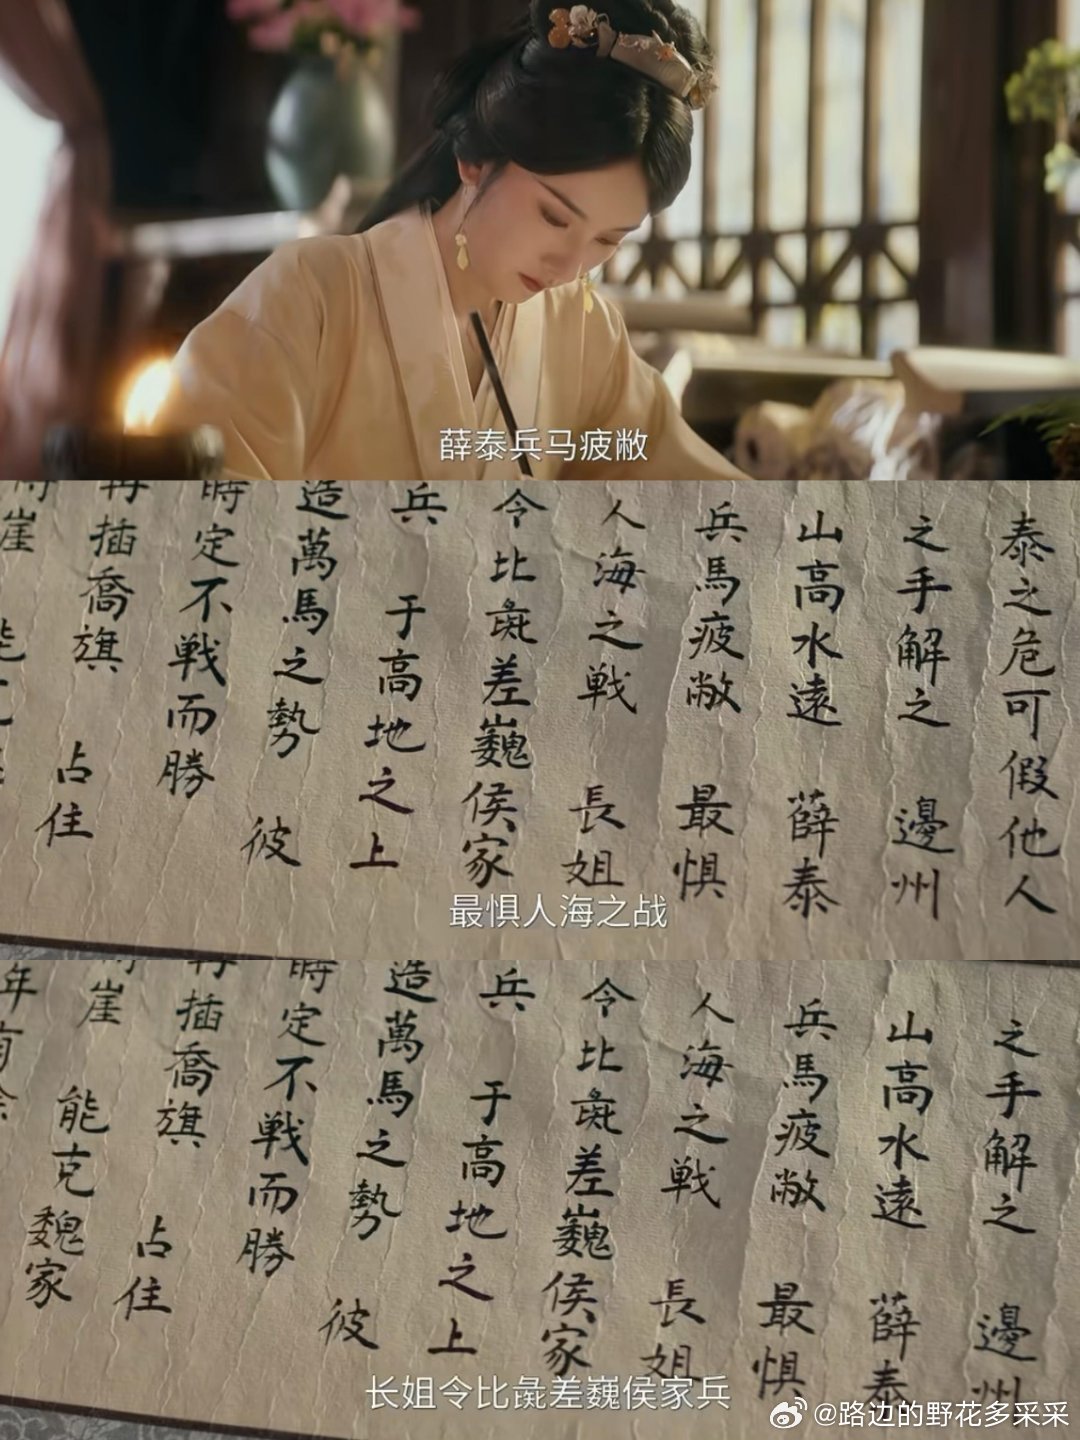 薛泰兵马疲敝
泰之危可假他人
之手解之 邊州
山高水遠 薛泰
兵馬疲敝 最惧
人海之戦 長姐
令比彘差巍侯家
兵 于高地之上
造萬馬之勢 彼
時定不戦而勝
再插喬旗 占住
崖
最惧人海之战
之手解之 邊州
山高水遠 薛泰
兵馬疲敝 最惧
人海之戦 長姐
令比彘差巍侯家
兵 于高地之上
造萬馬之勢 彼
時定不戦而勝
再插喬旗 占住
崖 能克魏家
年
长姐令比彘差巍侯家兵
@路边的野花多采采